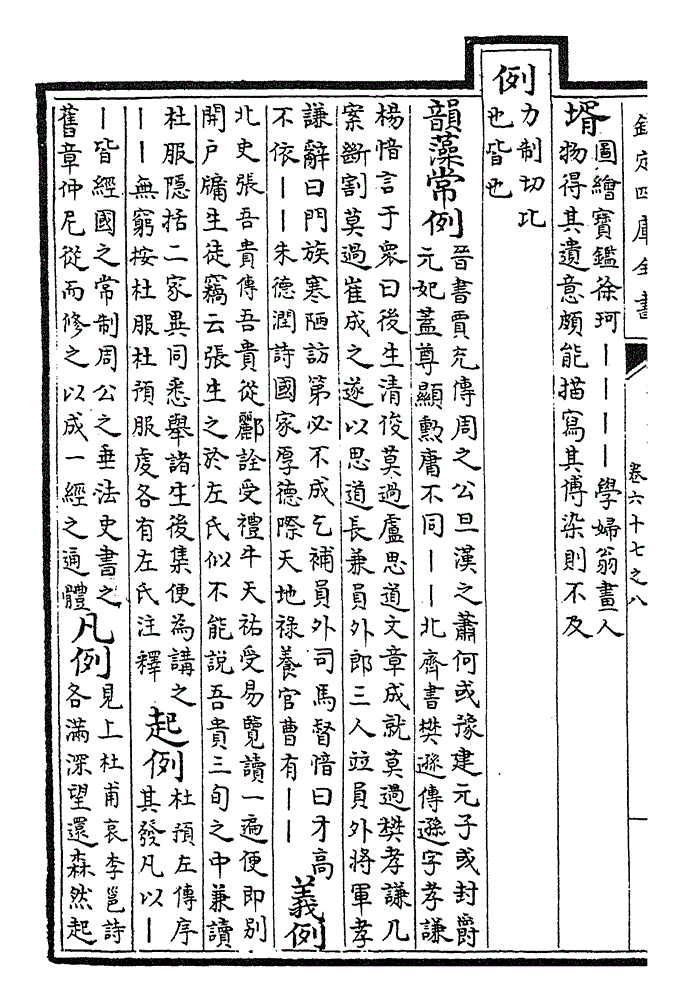 欽定四庫全書
卷六十七之八
壻圖繪寶鑑徐珂｜｜｜｜學婦翁畫人
物得其遺意頗能描寫其傅染則不及
例力制切比
也皆也
韻藻常例晉書賈充傳周之公旦漢之蕭何或豫建元子或封爵
元妃蓋尊顯勲庸不同｜｜北齊書樊遜傳遜字孝謙
楊愔言于衆曰後生清俊莫過盧思道文章成就莫過樊孝謙几
案斷割莫過崔成之遂以思道長兼員外郎三人竝員外將軍孝
謙辭曰門族寒陋訪第必不成乞補員外司馬督愔曰才高
不依｜｜朱德潤詩國家厚德際天地祿養官曹有｜｜義例
北史張吾貴傳吾貴從酈詮受禮牛天祐受易覽讀一遍便即别
開户牖生徒竊云張生之於左氏似不能說吾貴三旬之中兼讀
杜服隱括二家異同悉舉諸生後集便為講之
｜｜無窮按杜服杜預服䖍各有左氏注釋
起例杜預左傳序
其發凡以｜
｜皆經國之常制周公之垂法史書之
舊章仲尼從而修之以成一經之通體
凡例見上杜甫哀李邕詩
各滿深望還森然起